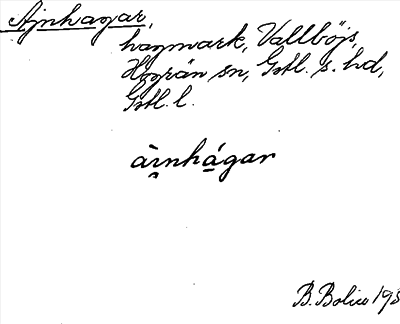 Ajnhagar,
hagmark, Vallbÿjs,
Hogrän sn, Gotl. s. hd,
Gotl. l.
àı̯nhá̱gar
B. Bolin 193